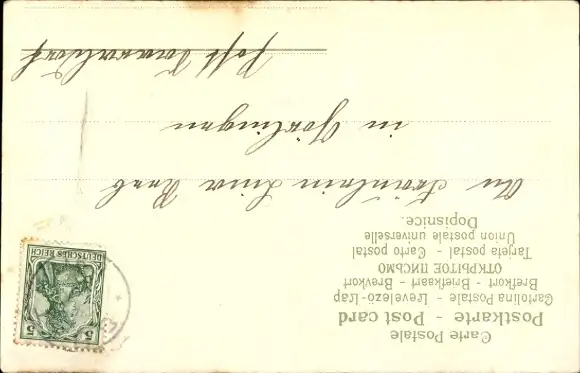 Carte Postale
Postkarte - Post card
Cartolina Postale - Levelezö-Lap
Brefkort - Briefkaart - Brevkort
ОТКРЫТОЕ ПИСЬМО
Tarjeta postal - Carto postal
Union postale universelle
Dopisnice.
5
DEUTSCHES REICH
An Fräulein Luise Raab
in
Post